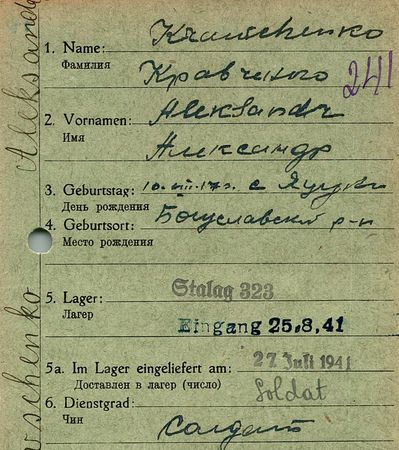 Krawtschenko
1. Name:
Фамилия
Кравченко
241
Aleksandr
2. Vornamen:
Имя
Александр
3. Geburtstag: 10.VIII.17г. с.
День рождения
4. Geburtsort: Богуславский р-н
Место рождения
5. Lager: Stalag 323
Лагер
Eingang 25.8.41
5a. Im Lager eingeliefert am: 27 Juli 1941
Доставлен в лагер (число)
Soldat
6. Dienstgrad:
Чин
Солдат